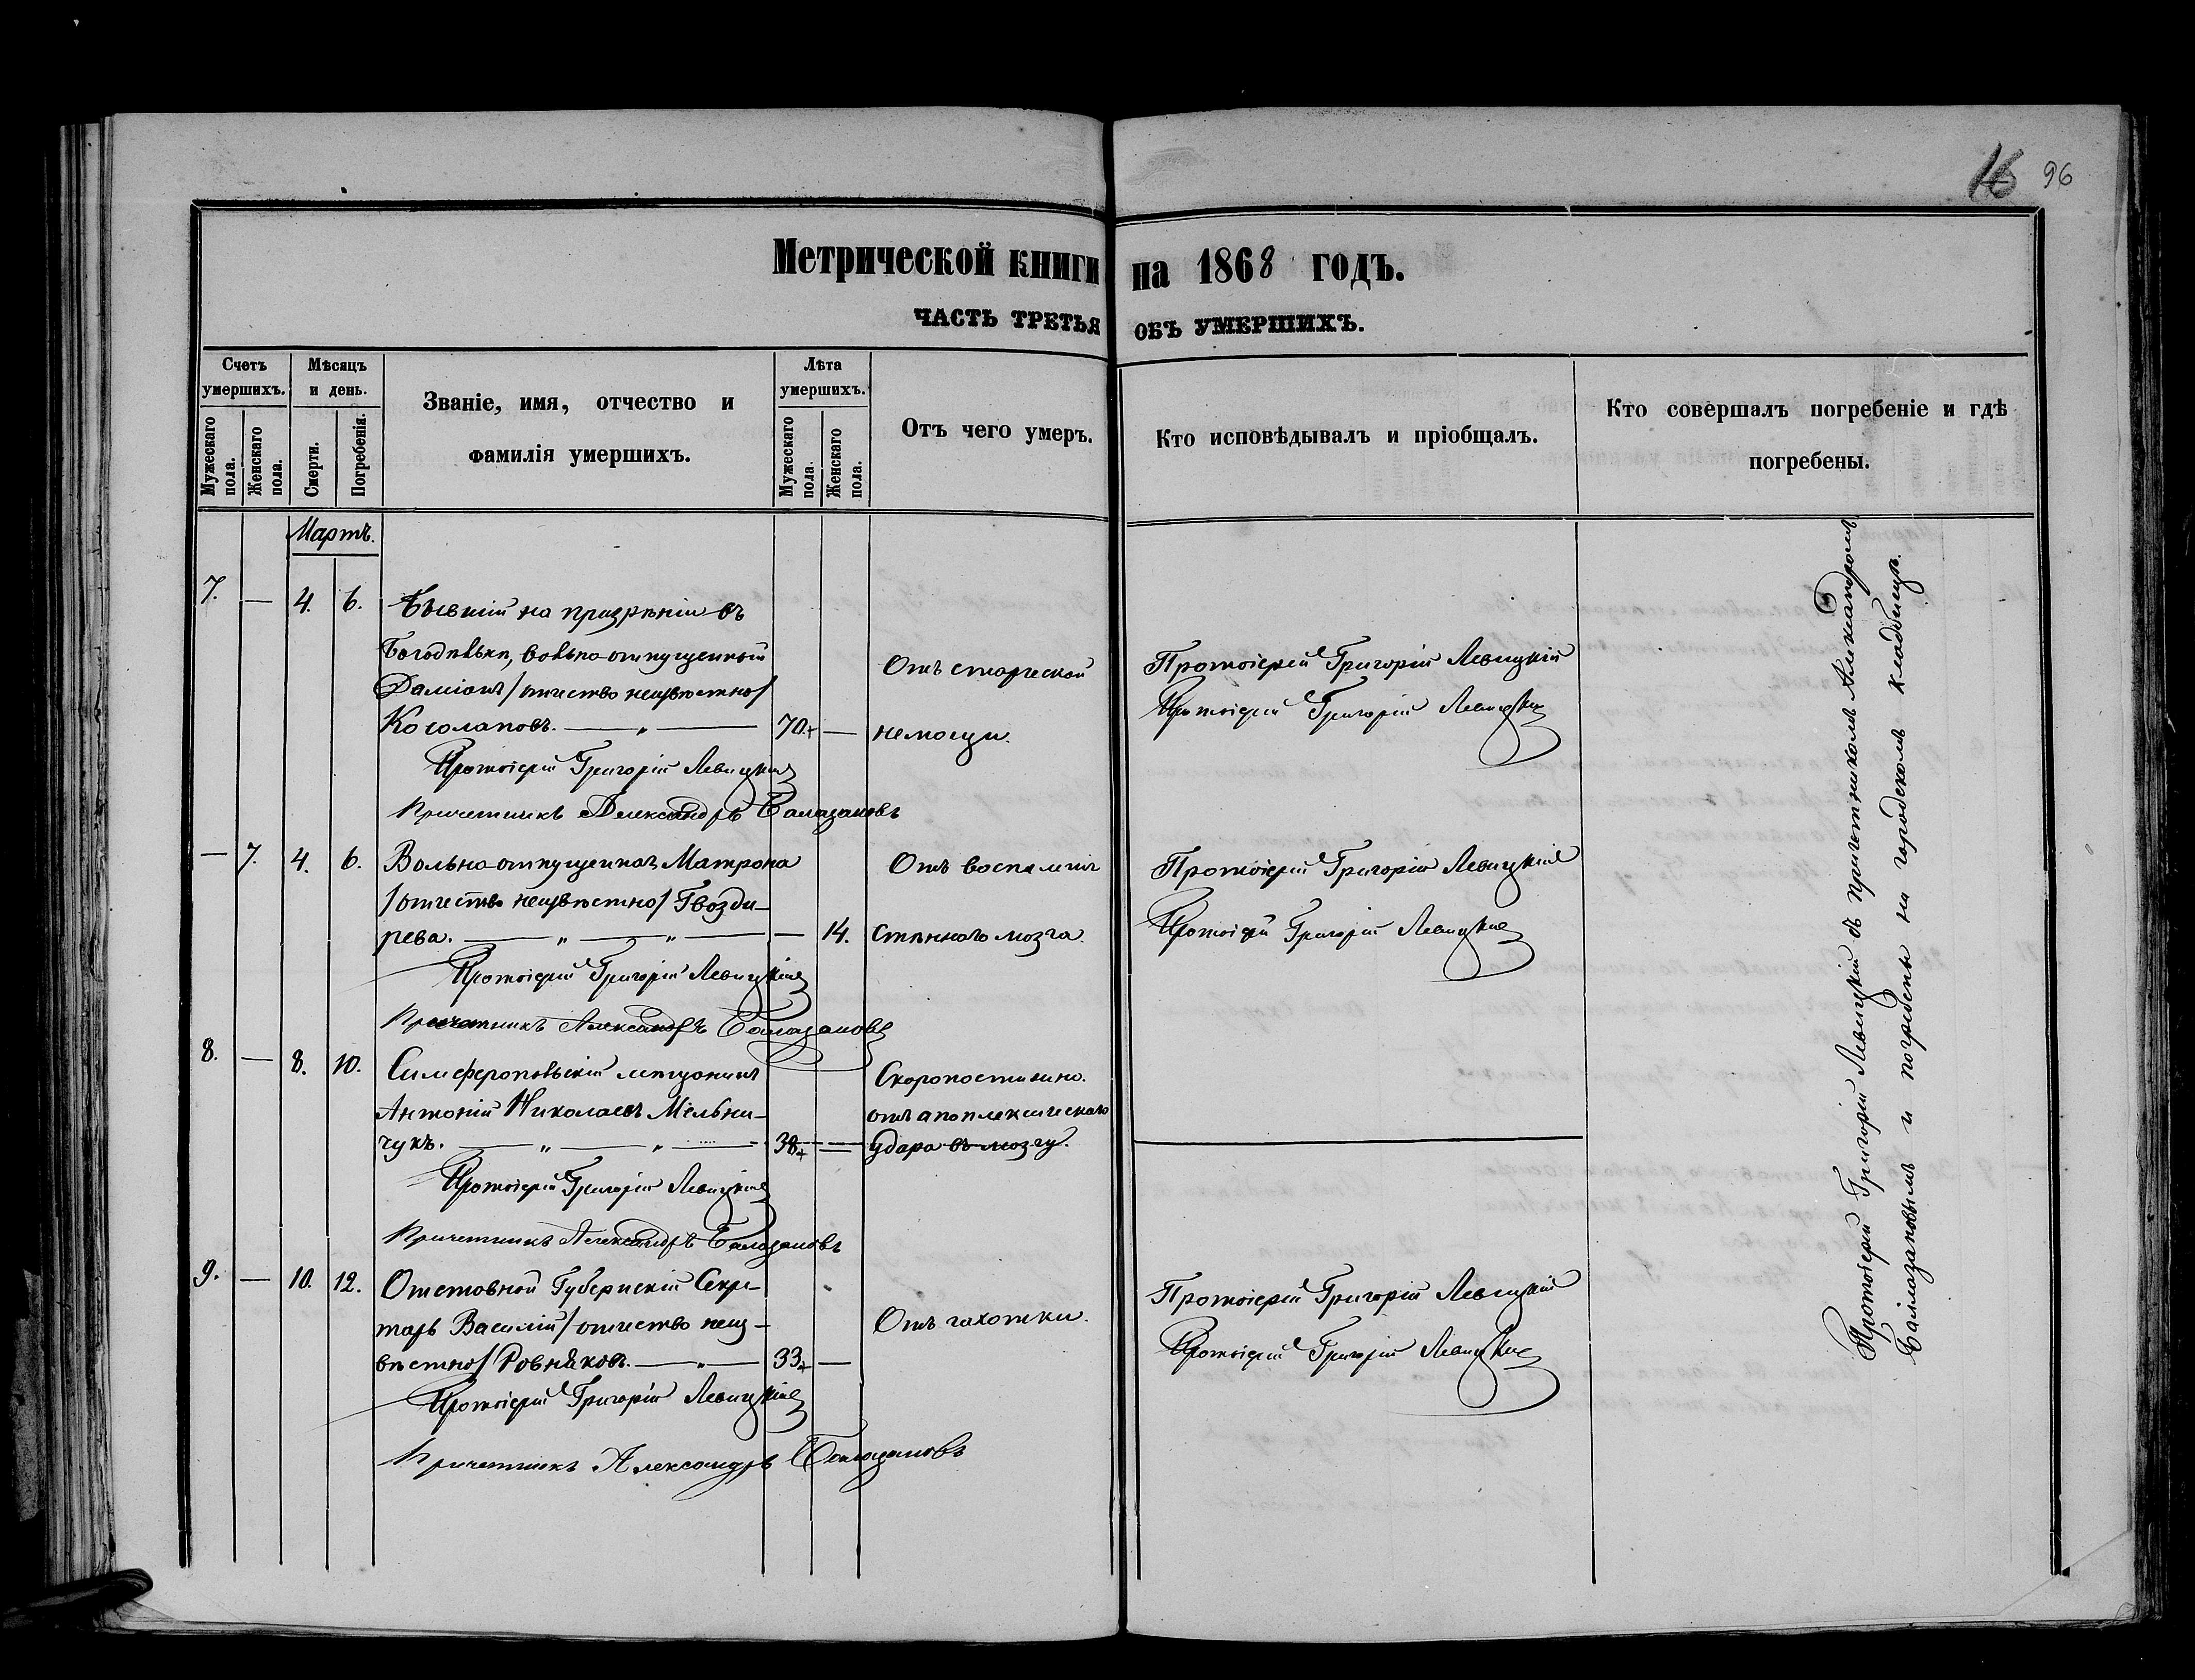 16 96
Метрической книги на 1868 годъ.
ЧАСТЬ ТРЕТЬЯ ОБЪ УМЕРШИХЪ.
Счетъ умершихъ.
Мужескаго пола.
Женскаго пола.
Мѣсяцъ и день.
Смерти.
Погребенія.
Званіе, имя, отчество и
фамилія умершихъ.
Лѣта умершихъ.
Мужескаго пола.
Женскаго пола.
Отъ чего умеръ.
Кто исповѣдывалъ и пріобщалъ.
Кто совершалъ погребеніе и гдѣ
погребены.
Мартъ.
7. — 4. 6. Бывшій на призрѣніи въ
Богодѣльни, вольно-отпущенный
Даміанъ /отчество неизвѣстно/
Косолаповъ. — „ — 70. —
Отъ старческой
немощи.
Протоіерей Григорій Левицкій
Протоіерей Григорій Левицкій
Протоіерей Григорій Левицкій
Причетникъ Александръ Балазановъ
— 7. 4. 6. Вольно-отпущенная Матрона
/отчество неизвѣстно/ Гвозди-
рева. — „ — „ — — 14.
Отъ воспаленія
Спиннаго мозга.
Протоіерей Григорій Левицкій
Протоіерей Григорій Левицкій
Протоіерей Григорій Левицкій
Причетникъ Александръ Балазановъ
8. — 8. 10. Симферопольскій мѣщанинъ
Антоній Николаевъ Мельни-
чукъ. — „ — „ — 38. —
Скоропостижно.
отъ апоплексическаго
удара въ мозгу.
Протоіерей Григорій Левицкій
Причетникъ Александръ Балазановъ
9. — 10. 12. Отставной Губернскій Секре-
тарь Василій /отчество неиз-
вѣстно/ Ровняковъ. — „ — 33. —
Отъ чахотки.
Протоіерей Григорій Левицкій
Протоіерей Григорій Левицкій
Протоіерей Григорій Левицкій
Причетникъ Александръ Балазановъ
Протоіерей Григорій Левицкій съ причетникомъ Александромъ
и погребены на городскомъ кладбищѣ.